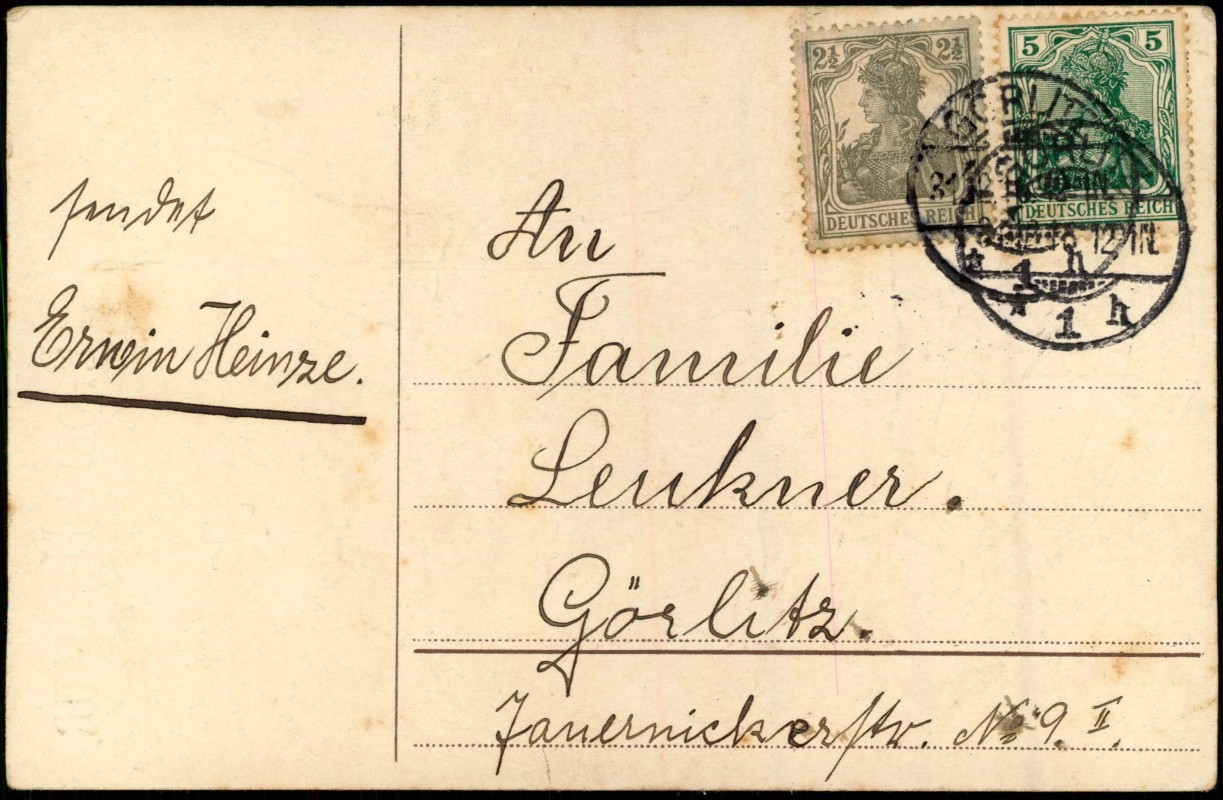 sendet
Erwin Heinze.
2½ 2½
DEUTSCHES REICH
5 5
DEUTSCHES REICH
GÖRLITZ
12-1N.
* 1 h
* 1 h
An
Familie
Leukner.
Görlitz.
Jauernickerstr. No 9. II.